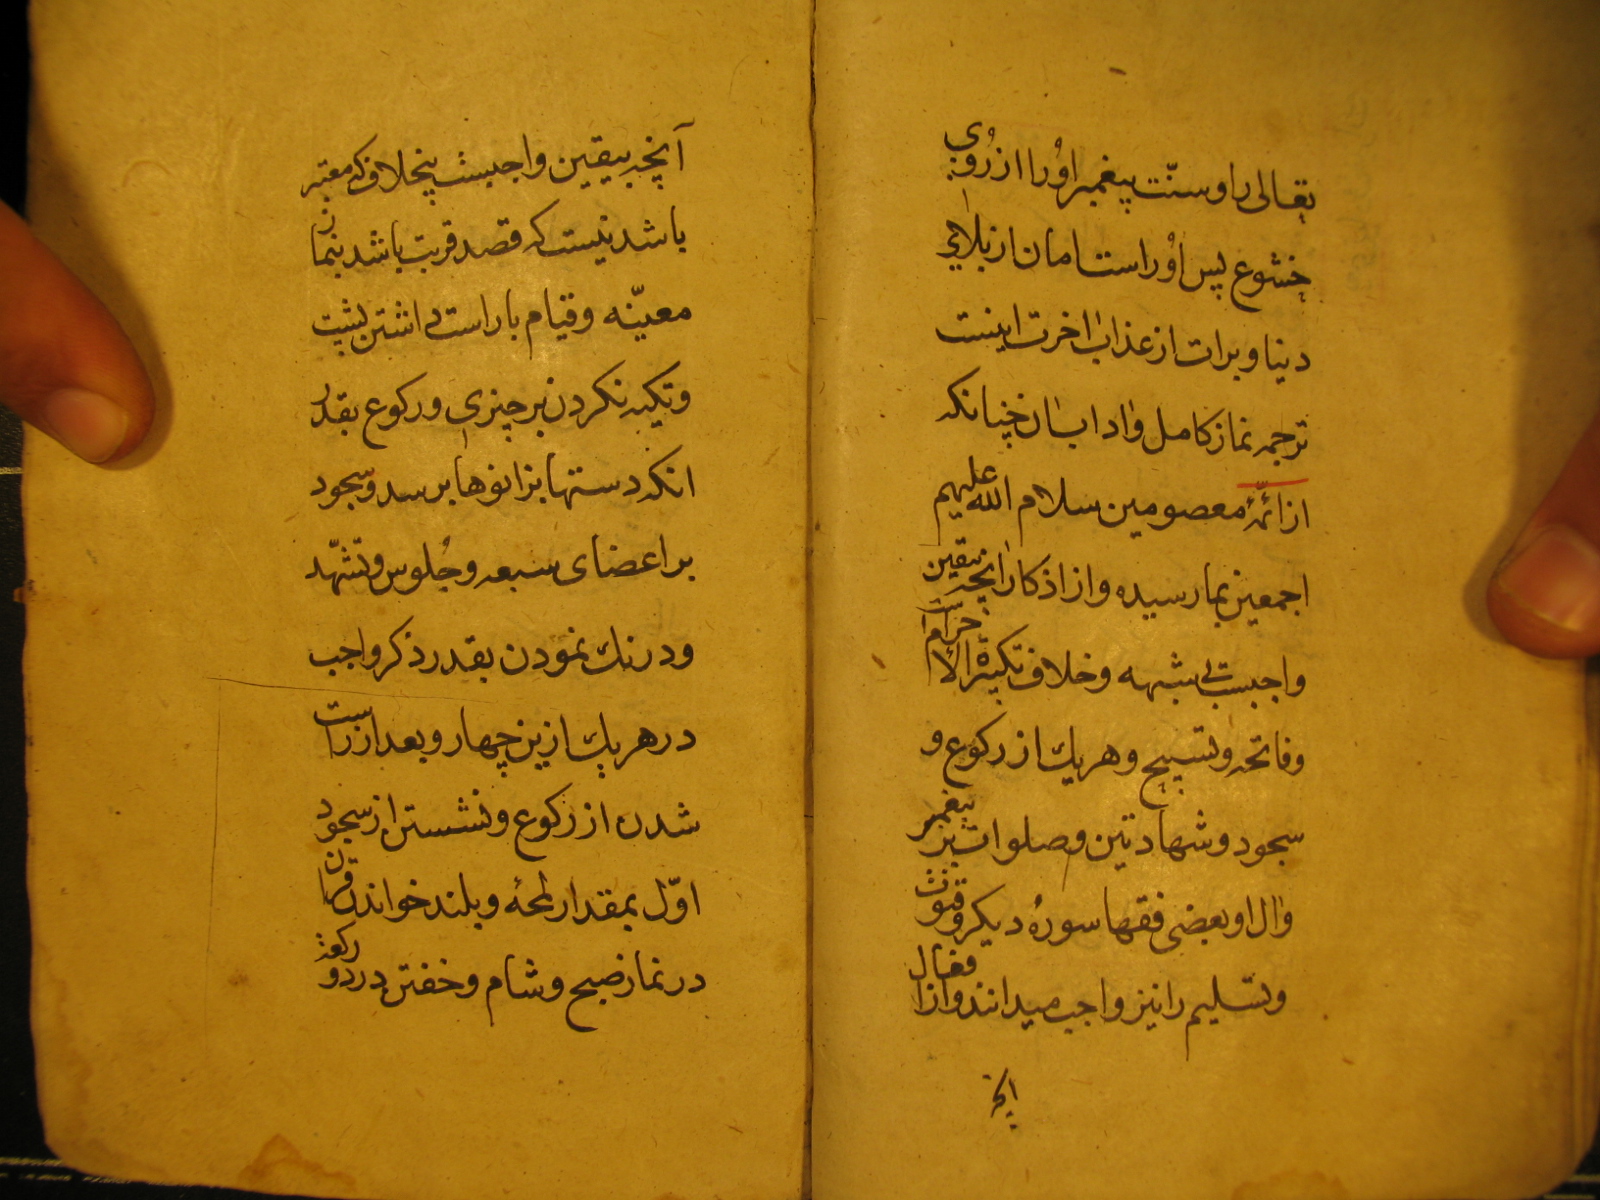 تعالی را و سنّت پیغمبر او را از روی
خشوع پس اوراست امان از بلای
دنیا و برات از عذاب اخرت اینست
ترجمه نماز کامل و اداب ان چنانکه
از ائمّهٔ معصومین سلام الله علیهم
اجمعین بما رسیده و از اذکار انچه بیقین
واجبست بی شبهه و خلاف تکبیرهٔ الاحرام است
و فاتحه و تسبیح و هر یک از رکوع و
سجود و شهادتین و صلوات بر پیغمبر
و ال او و بعضی فقها سورهٔ دیکر و قنوت
و تسلیم را نیز واجب میدانند و از افعال
انچه
آنچه بیقین واجبست بیخلاف که معتبر
باشد نیست که قصد قربت باشد بنماز
معینّه و قیام با راست داشتن پشت
و تکیه نکردن بر چیزی و رکوع بقدر
انکه دستها بزانوها برسد و سجود
بر اعضای سبعه و جُلوس و تشهّد
و درنک نمودن بقدر ذکر واجب
در هر یک ازین چهار و بعد از راست
شدن از رکوع و نشستن از سجود
اوّل بمقدار لمحهٔ و بلند خواندن قران
در نماز صبح و شام و خفتن در دو رکعة